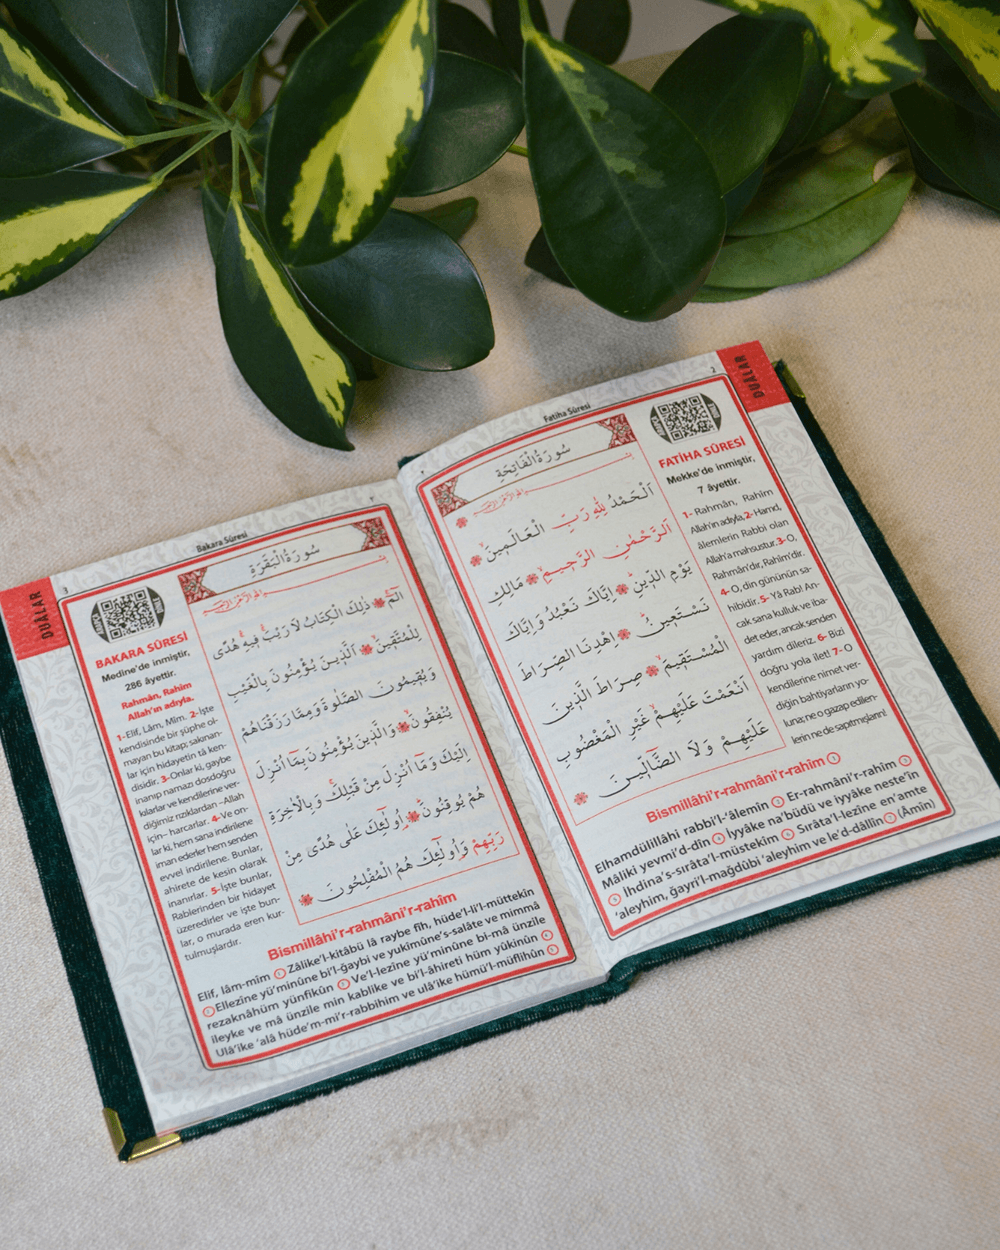 2
Fatiha Sûresi
DUÂLAR
سُورَةُ الْفَاتِحَةِ
اَلْحَمْدُ لِلّٰهِ رَبِّ الْعَالَمٖينَ
اَلرَّحْمٰنِ الرَّحٖيمِ مَالِكِ
يَوْمِ الدّٖينِ اِيَّاكَ نَعْبُدُ وَاِيَّاكَ
نَسْتَعٖينُ اِهْدِنَا الصِّرَاطَ
الْمُسْتَقٖيمَ صِرَاطَ الَّذٖينَ
اَنْعَمْتَ عَلَيْهِمْ غَيْرِ الْمَغْضُوبِ
عَلَيْهِمْ وَلَا الضَّٓالّٖينَ
FATİHA SÛRESİ
Mekke'de inmiştir,
7 âyettir.
1- Rahmân, Rahîm
Allah'ın adıyla. 2- Hamd,
âlemlerin Rabbi olan
Allah'a mahsustur. 3- O,
Rahmân'dır, Rahîm'dir.
4- O, din gününün sa-
hibidir. 5- Yâ Rab! An-
cak sana kulluk ve iba-
det eder, ancak senden
yardım dileriz. 6- Bizi
doğru yola ilet! 7- O
kendilerine nimet ver-
diğin bahtiyarların yo-
luna; ne o gazap edilen-
lerin ne de sapıtmışların!
Bismillâhi'r-rahmâni'r-rahîm 1
Elhamdülillâhi rabbi'l-'âlemîn 2 Er-rahmâni'r-rahîm 3
Mâliki yevmi'd-dîn 4 İyyâke na'büdü ve iyyâke neste'în
5 İhdina's-sırâta'l-müstekîm 6 Sırâta'l-lezîne en'amte
'aleyhim, ğayri'l-mağdûbi 'aleyhim ve le'd-dâllîn 7 (Âmîn)
3
Bakara Sûresi
DUÂLAR
سُورَةُ الْبَقَرَةِ
الٓمٓ ذٰلِكَ الْكِتَابُ لَا رَيْبَ فٖيهِ هُدًى
لِلْمُتَّقٖينَ اَلَّذٖينَ يُؤْمِنُونَ بِالْغَيْبِ
وَيُقٖيمُونَ الصَّلٰوةَ وَمِمَّا رَزَقْنَاهُمْ
يُنْفِقُونَ وَالَّذٖينَ يُؤْمِنُونَ بِمَٓا اُنْزِلَ
اِلَيْكَ وَمَٓا اُنْزِلَ مِنْ قَبْلِكَ وَبِالْاٰخِرَةِ
هُمْ يُوقِنُونَ اُو۬لٰٓئِكَ عَلٰى هُدًى مِنْ
رَبِّهِمْ وَاُو۬لٰٓئِكَ هُمُ الْمُفْلِحُونَ
BAKARA SÛRESİ
Medine'de inmiştir,
286 âyettir.
Rahmân, Rahîm
Allah'ın adıyla.
1- Elif, Lâm, Mîm. 2- İşte
kendisinde bir şüphe ol-
mayan bu kitap; sakınan-
lar için hidayetin tâ ken-
disidir. 3- Onlar ki, gaybe
inanıp namazı dosdoğru
kılarlar ve kendilerine ver-
diğimiz rızıklardan – Allah
için – harcarlar. 4- Ve on-
lar ki, hem sana indirilene
iman ederler hem senden
evvel indirilene. Bunlar,
ahirete de kesin olarak
inanırlar. 5- İşte bunlar,
Rablerinden bir hidayet
üzeredirler ve işte bun-
lar, o murada eren kur-
tulmuşlardır.
Bismillâhi'r-rahmâni'r-rahîm
Elif, lâm-mîm 1 Zâlike'l-kitâbü lâ raybe fîh, hüde'l-li'l-müttekîn
2 Ellezîne yü'minûne bi'l-ğaybi ve yukîmûne's-salâte ve mimmâ
rezaknâhüm yünfikûn 3 Ve'l-lezîne yü'minûne bi-mâ ünzile
ileyke ve mâ ünzile min kablike ve bi'l-âhireti hüm yûkinûn 4
Ulâ'ike 'alâ hüde'm-mi'r-rabbihim ve ulâ'ike hümü'l-müflihûn 5